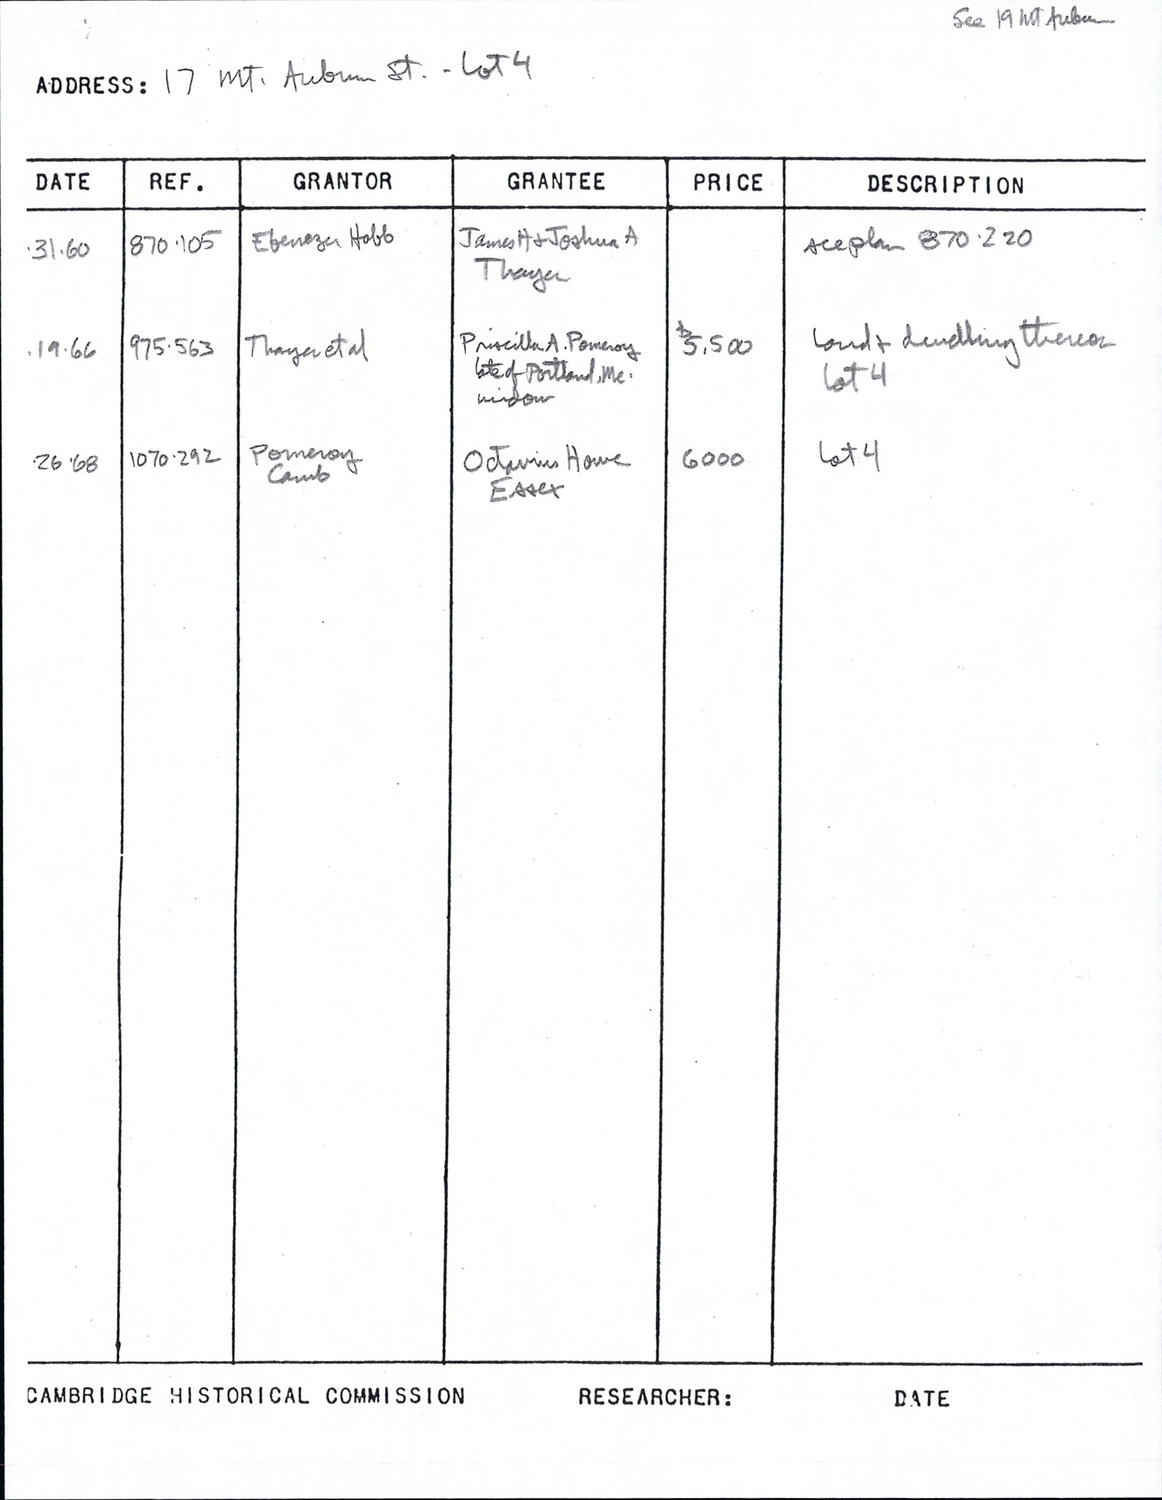 See 19 Mt Auburn
ADDRESS: 17 Mt. Auburn St. - Lot 4
DATE REF. GRANTOR GRANTEE PRICE DESCRIPTION
.31.60 870.105 Ebenezer Hobb James H + Joshua A see plan 870.220
Thayer
.19.66 975.563 Thayer et al Priscilla A. Pomeroy $5,500 land + dwelling thereon
late of Portland, Me. Lot 4
widow
.26.68 1070.292 Pomeroy Octavius Howe 6000 Lot 4
Camb Essex
CAMBRIDGE HISTORICAL COMMISSION RESEARCHER: DATE